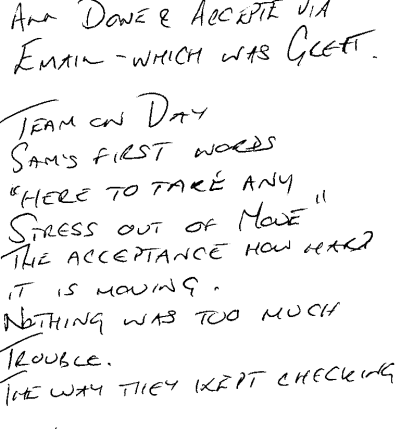 All Done & Accepte via
Email - which was Great.
Team on Day
Sam's first words
"Here to take any
Stress out of Move"
The acceptance how hard
it is moving.
Nothing was too much
Trouble.
The way they kept checking